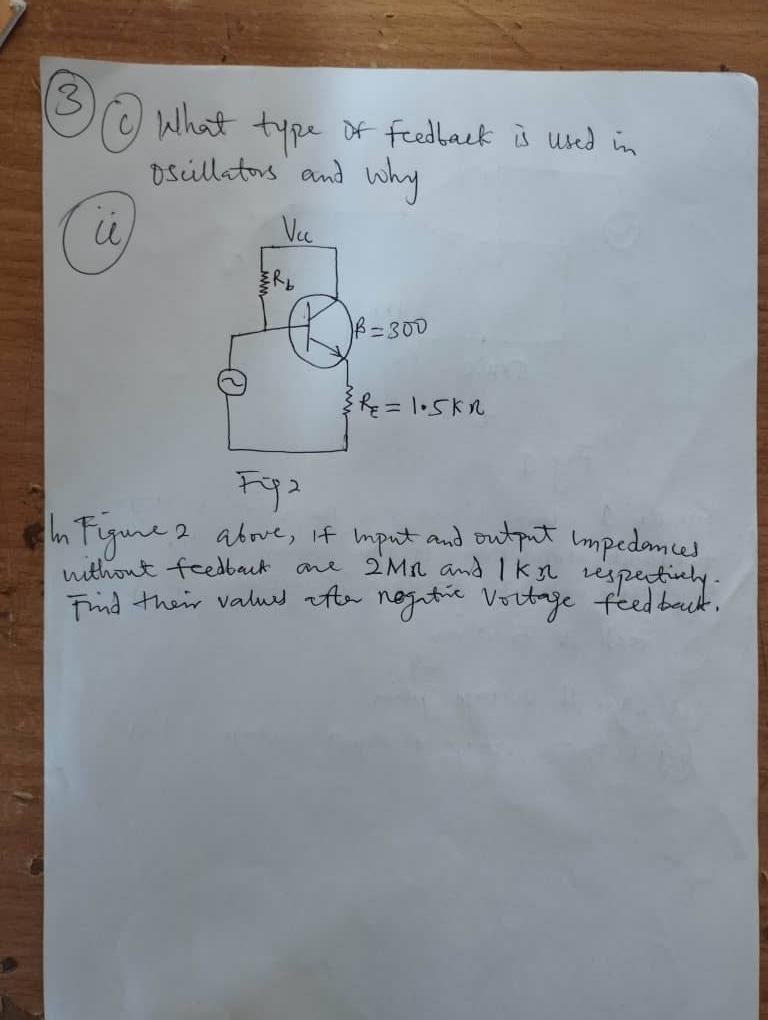 3 (i) What type of feedback is used in
oscillators and why
ii
Vcc
Rb
β = 300
RE = 1.5KΩ
Fig 2
In Figure 2 above, if input and output impedances
without feedback are 2MΩ and 1KΩ respectively.
Find their values after negative Voltage feedback.